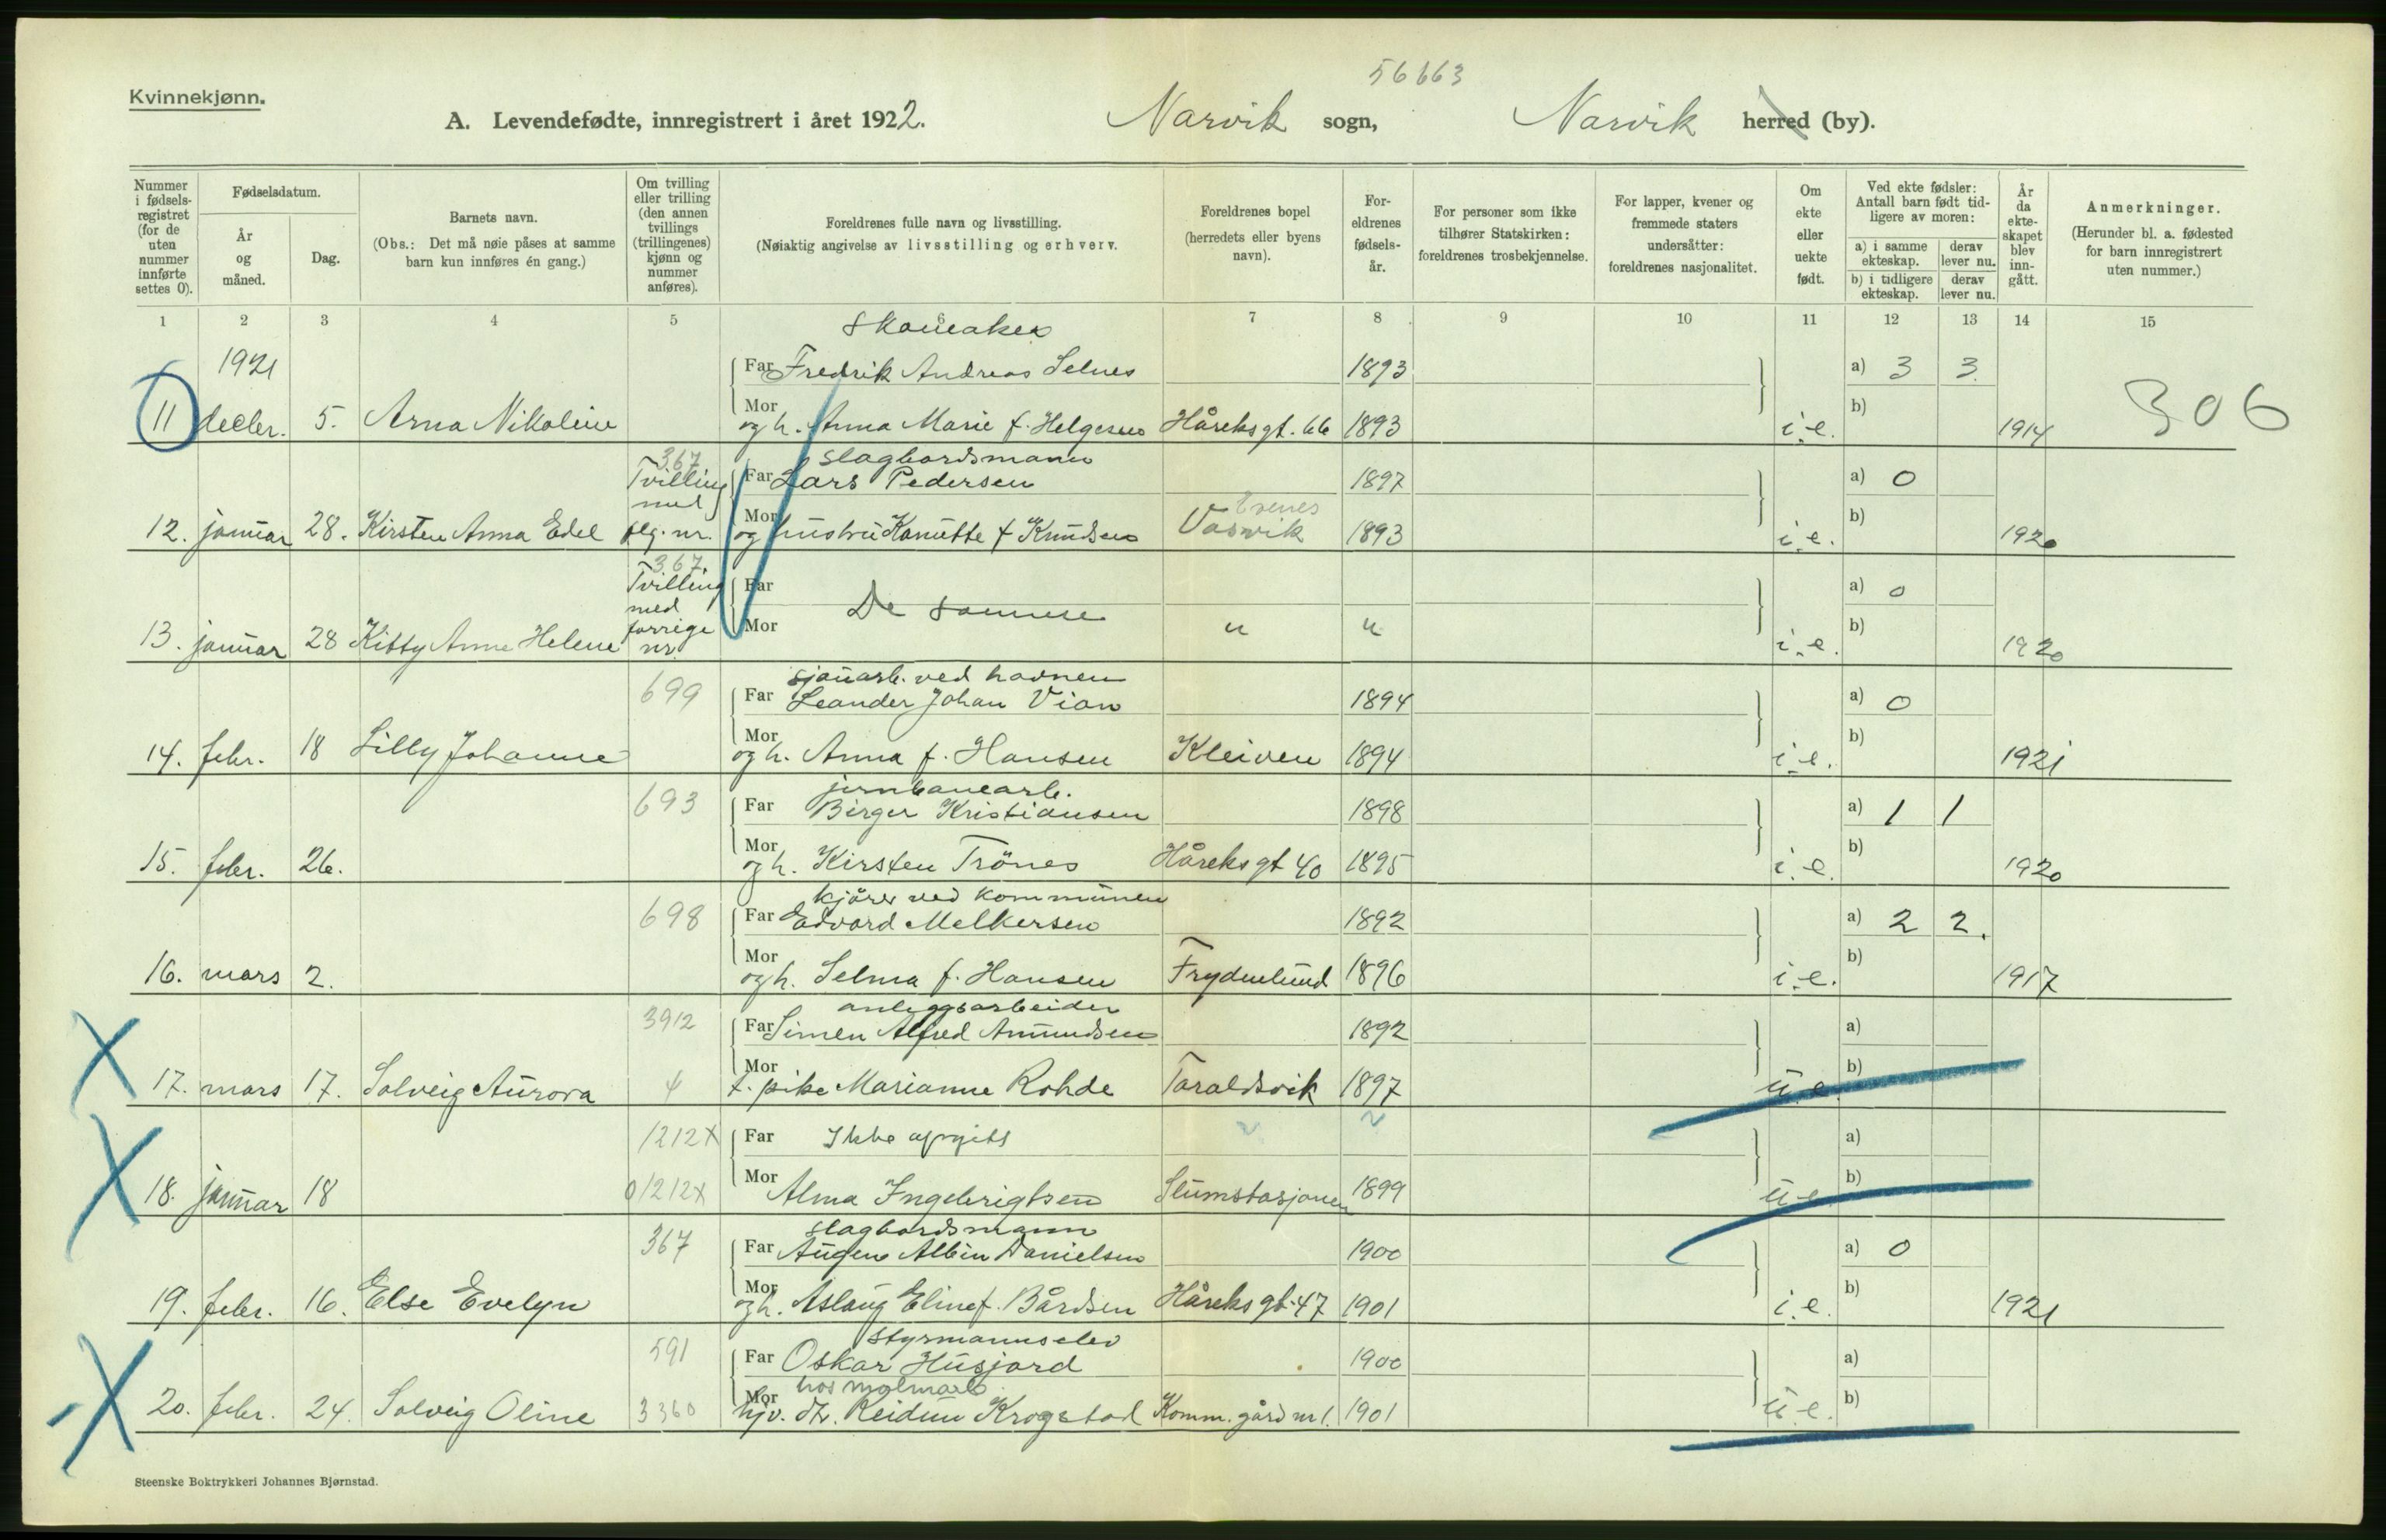 56663
Kvinnekjønn.
A. Levendefødte, innregistrert i året 1922. Narvik sogn, Narvik herred (by).
Nummer i fødsels-registret (for de uten nummer innførte settes 0).
Fødselsdatum.
År og måned.
Dag.
Barnets navn.
(Obs.: Det må nøie påses at samme barn kun innføres én gang.)
Om tvilling eller trilling (den annen tvillings (trillingenes) kjønn og nummer anføres).
Foreldrenes fulle navn og livsstilling.
(Nøiaktig angivelse av livsstilling og erhverv.
Foreldrenes bopel (herredets eller byens navn).
For-eldrenes fødsels-år.
For personer som ikke tilhører Statskirken: foreldrenes trosbekjennelse.
For lapper, kvener og fremmede staters undersåtter: foreldrenes nasjonalitet.
Om ekte eller uekte født.
Ved ekte fødsler: Antall barn født tid-ligere av moren:
a) i samme ekteskap. derav lever nu.
b) i tidligere ekteskap. derav lever nu.
År da ekte-skapet blev inn-gått.
Anmerkninger.
(Herunder bl. a. fødested for barn innregistrert uten nummer.)
1 2 3 4 5 6 7 8 9 10 11 12 13 14 15
skomaker
1921 Far Fredrik Andreas Selnes 1893 a) 3 3
Mor b) 306
11 decbr. 5. Arna Nikoline og h. Anna Marie f. Helgesen Håreksgt. 66 1893 i.e. 1914
367 slagbordsmann
Tvilling Far Lars Pedersen 1897 a) 0
med Mor Evenes b)
12. januar 28. Kirsten Anna Edel flg. nr. og hustru Kanutte f Knudsen Vasvik 1893 i.e. 1920
367.
Tvilling Far a) 0
med De samme
forrige Mor " " b)
13. januar 28 Kitty Anne Helene nr. i.e. 1920
sjauarb. ved havnen
699 Far Leander Johan Vian 1894 a) 0
Mor b)
14. febr. 18 Lilly Johanne og h. Anna f. Hansen Kleiven 1894 i.e. 1921
jernbanearb.
693 Far Birger Kristiansen 1898 a) 1 1
Mor b)
15. febr. 26. og h. Kirsten Trönes Håreksgt 40 1895 i.e. 1920
kjörer ved kommunen
698 Far Edvard Melkersen 1892 a) 2 2.
Mor b)
16. mars 2. og h. Selma f. Hansen Frydenlund 1896 i.e. 1917
anleggsarbeider
3912 Far Simen Alfred Amundsen 1892 a)
Mor b)
17. mars 17. Solveig Aurora 4 t. pike Marianne Rohde Taraldsvik 1897 u.e.
1212x Far Ikke opgitt a)
Mor b)
18. januar 18 01212x Alma Ingebrigtsen Slumstasjonen 1899 u.e.
slagbordsmann
367 Far Augen Albin Danielsen 1900 a) 0
Mor b)
19. febr. 16. Else Evelyn og h. Aslaug Eline f. Bårdsen Håreksgt. 47 1901 i.e. 1921
styrmannselev
591 Far Oskar Husjord 1900 a)
Mor hos b)
20. febr. 24. Solveig Oline 3360 hjv. dtr. Reidun Krogstad Komm. gård nr 1. 1901 u.e.
Steenske Boktrykkeri Johannes Bjørnstad.